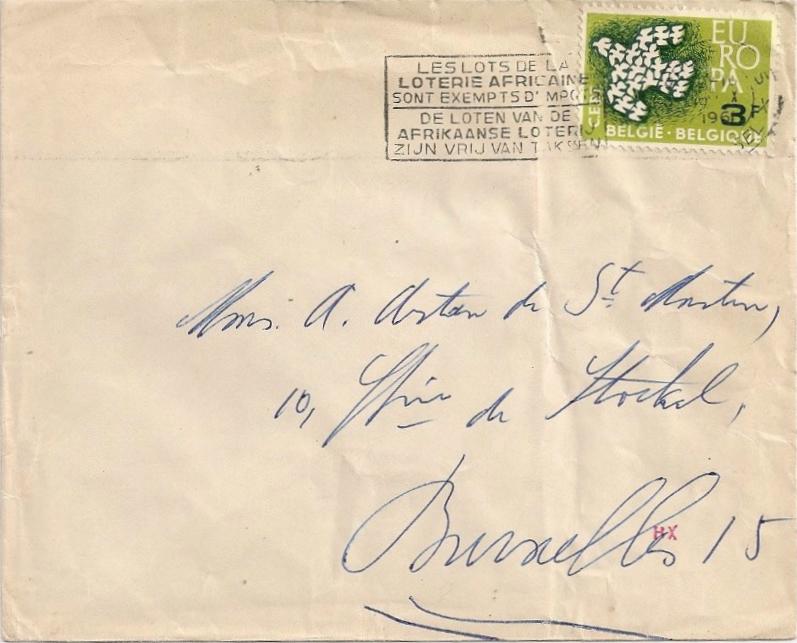 LES LOTS DE LA
LOTERIE AFRICAINE
SONT EXEMPTS D'
DE LOTEN VAN DE
AFRIKAANSE LOTERIJ
ZIJN VRIJ VAN TAKSEN
EU
RO
PA
CEPT
3F
BELGIË · BELGIQUE
Mons. A. de St Martin,
10, de Stockel,
Bruxelles 15
HX